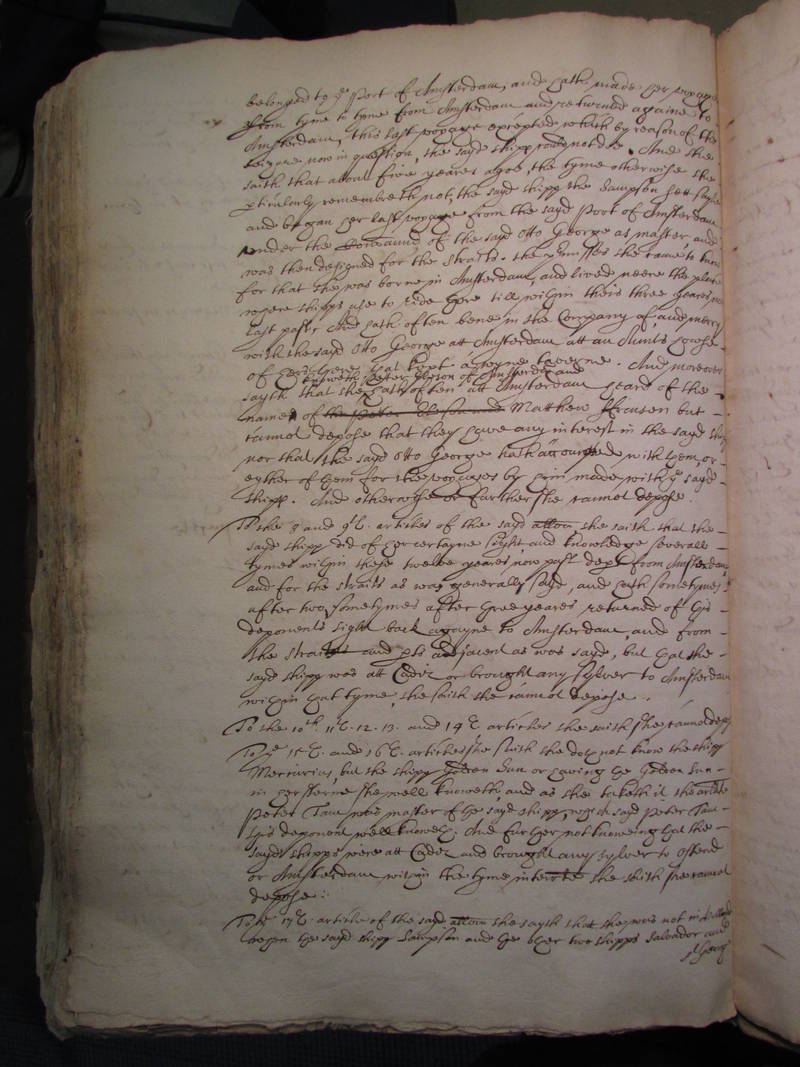 belonged to ye Port of Amsterdam, and hath made her voyage
from tyme to tyme from Amsterdam and returned againe to
Amsterdam, this last voyage excepted which by reason of the
seizure now in question, the sayd shipp could not doe. And she
saith that about five yeares agoe, the tyme otherwise she
perticularly remembreth not, the sayd shipp the Sampson sett sayle
and began her last voyage from the sayd Port of Amsterdam
under the Command of the sayd Otto George as master and
was then designed for the straits. the premisses she came to knowe
for that she was borne in Amsterdam, and lived neere the place
where shipps use to ride there till within theis three yeares
last past, And hath often bene in the Company of, and merry
with the sayd Otto George att Amsterdam att an Aunts howse
of hers there that kept a wyne taverne. And moreover
knoweth Peter of Amsterdam and
sayth that she hath often att Amsterdam heard of the
names of the Peter Matthew ffrusen but
cannot depose that they have any interest in the sayd shipp
nor that the sayd Otto George hath accounted with them, or
eyther of them for the voyages by him made with ye sayd
shipp. And otherwise or further she cannot depose.
To the 8 and 9th. articles of the sayd allon she saith that the
sayd shipp did of her certayne sight and knowledge severall
tymes within these twelve yeares now past dept from Amsterdam
and for the straits as was generally sayd, and hath sometymes
after two, sometymes after three yeares returned of this
deponents sight back agayne to Amsterdam, and from
the straits and pts adjacent as was sayd, but that the
sayd shipp was att Cadiz or brought any sylver to Amsterdam
within that tyme, she saith she cannot depose.
To the 10th. 11th. 12. 13. and 14th articles she saith she cannot depose
To ye 15th. and 16th. articles she saith she doth not know the shipp
Mercurius, but the shipp Golden Sun or having the Golden Sun
in her sterne she well knoweth, and as she taketh it the arlate
Peter Tam was master of the sayd shipp, which sayd Peter Tam
this deponent well knoweth. And further not knoweing that the
sayd shipps were att Cadiz and brought any sylver to Ostend
or Amsterdam within the tyme interrate she saith she cannot
depose:
To ye 17th. article of the sayd allon she sayth that she was not in
when the sayd shipp Sampson and the other two shipps Salvador and
St George